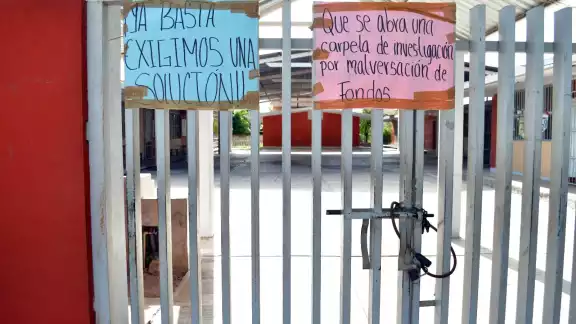 YA BASTA
EXIGIMOS UNA
SOLUCIÓN!!
Que se abra una
carpeta de investigación
por malversación de
Fondos